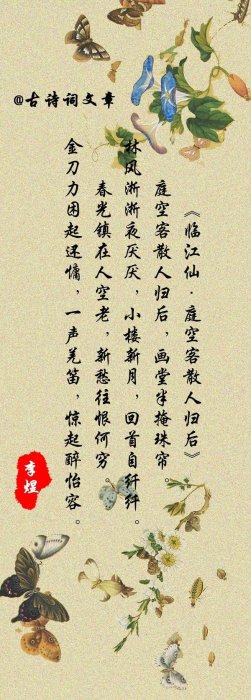 @古诗词文章
《临江仙·庭空客散人归后》
庭空客散人归后，画堂半掩珠帘。
林风淅淅夜厌厌，小楼新月，回首自纤纤。
春光镇在人空老，新愁往恨何穷
金刀力困起还慵，一声羌笛，惊起醉怡容。
李煜